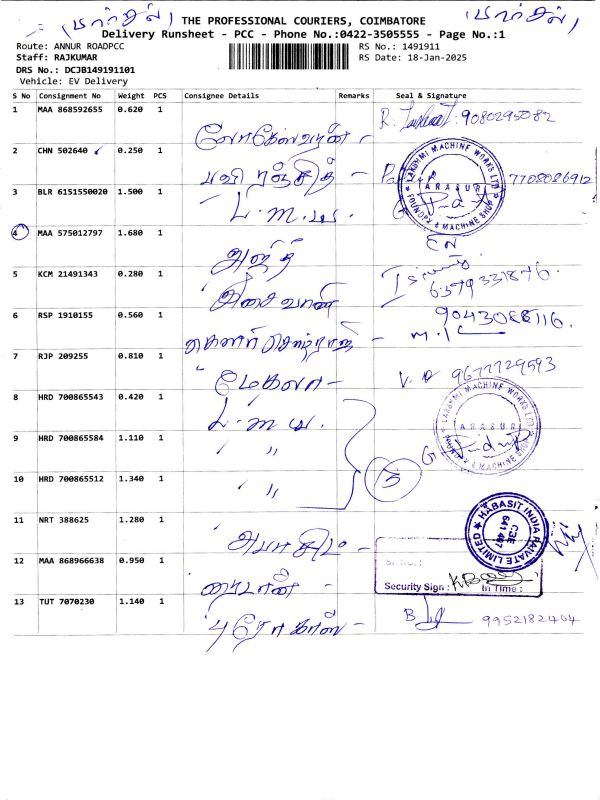 (பார்சல்) THE PROFESSIONAL COURIERS, COIMBATORE (பார்சல்)
Delivery Runsheet - PCC - Phone No.:0422-3505555 - Page No.:1
Route: ANNUR ROADPCC RS No.: 1491911
Staff: RAJKUMAR RS Date: 18-Jan-2025
DRS No.: DCJB149191101
Vehicle: EV Delivery
S No Consignment No Weight PCS Consignee Details Remarks Seal & Signature
1 MAA 868592655 0.620 1 லோகேஸ்வரன் - R. 9080295082
2 CHN 502640 0.250 1 பஜீ ரஞ்சித் - 7708086912
3 BLR 6151550020 1.500 1 L.M.W.
LAKSHMI MACHINE WORKS LTD
ARASUR
FOUNDRY & MACHINE SHOP
4 MAA 575012797 1.680 1 அஜித்
5 KCM 21491343 0.280 1 இசைவாணி 6379331876.
6 RSP 1910155 0.560 1 - 9043088116.
7 RJP 209255 0.810 1 மேகலா - 9677729593
8 HRD 700865543 0.420 1 L.M.W.
9 HRD 700865584 1.110 1 " "
10 HRD 700865512 1.340 1 " " 3
LAKSHMI MACHINE WORKS LTD
ARASUR
FOUNDRY & MACHINE SHOP
11 NRT 388625 1.280 1
HABASIT INDIA PRIVATE LIMITED
641 407
12 MAA 868966638 0.950 1
Security Sign : In Time :
13 TUT 7070230 1.140 1 B 9952182404